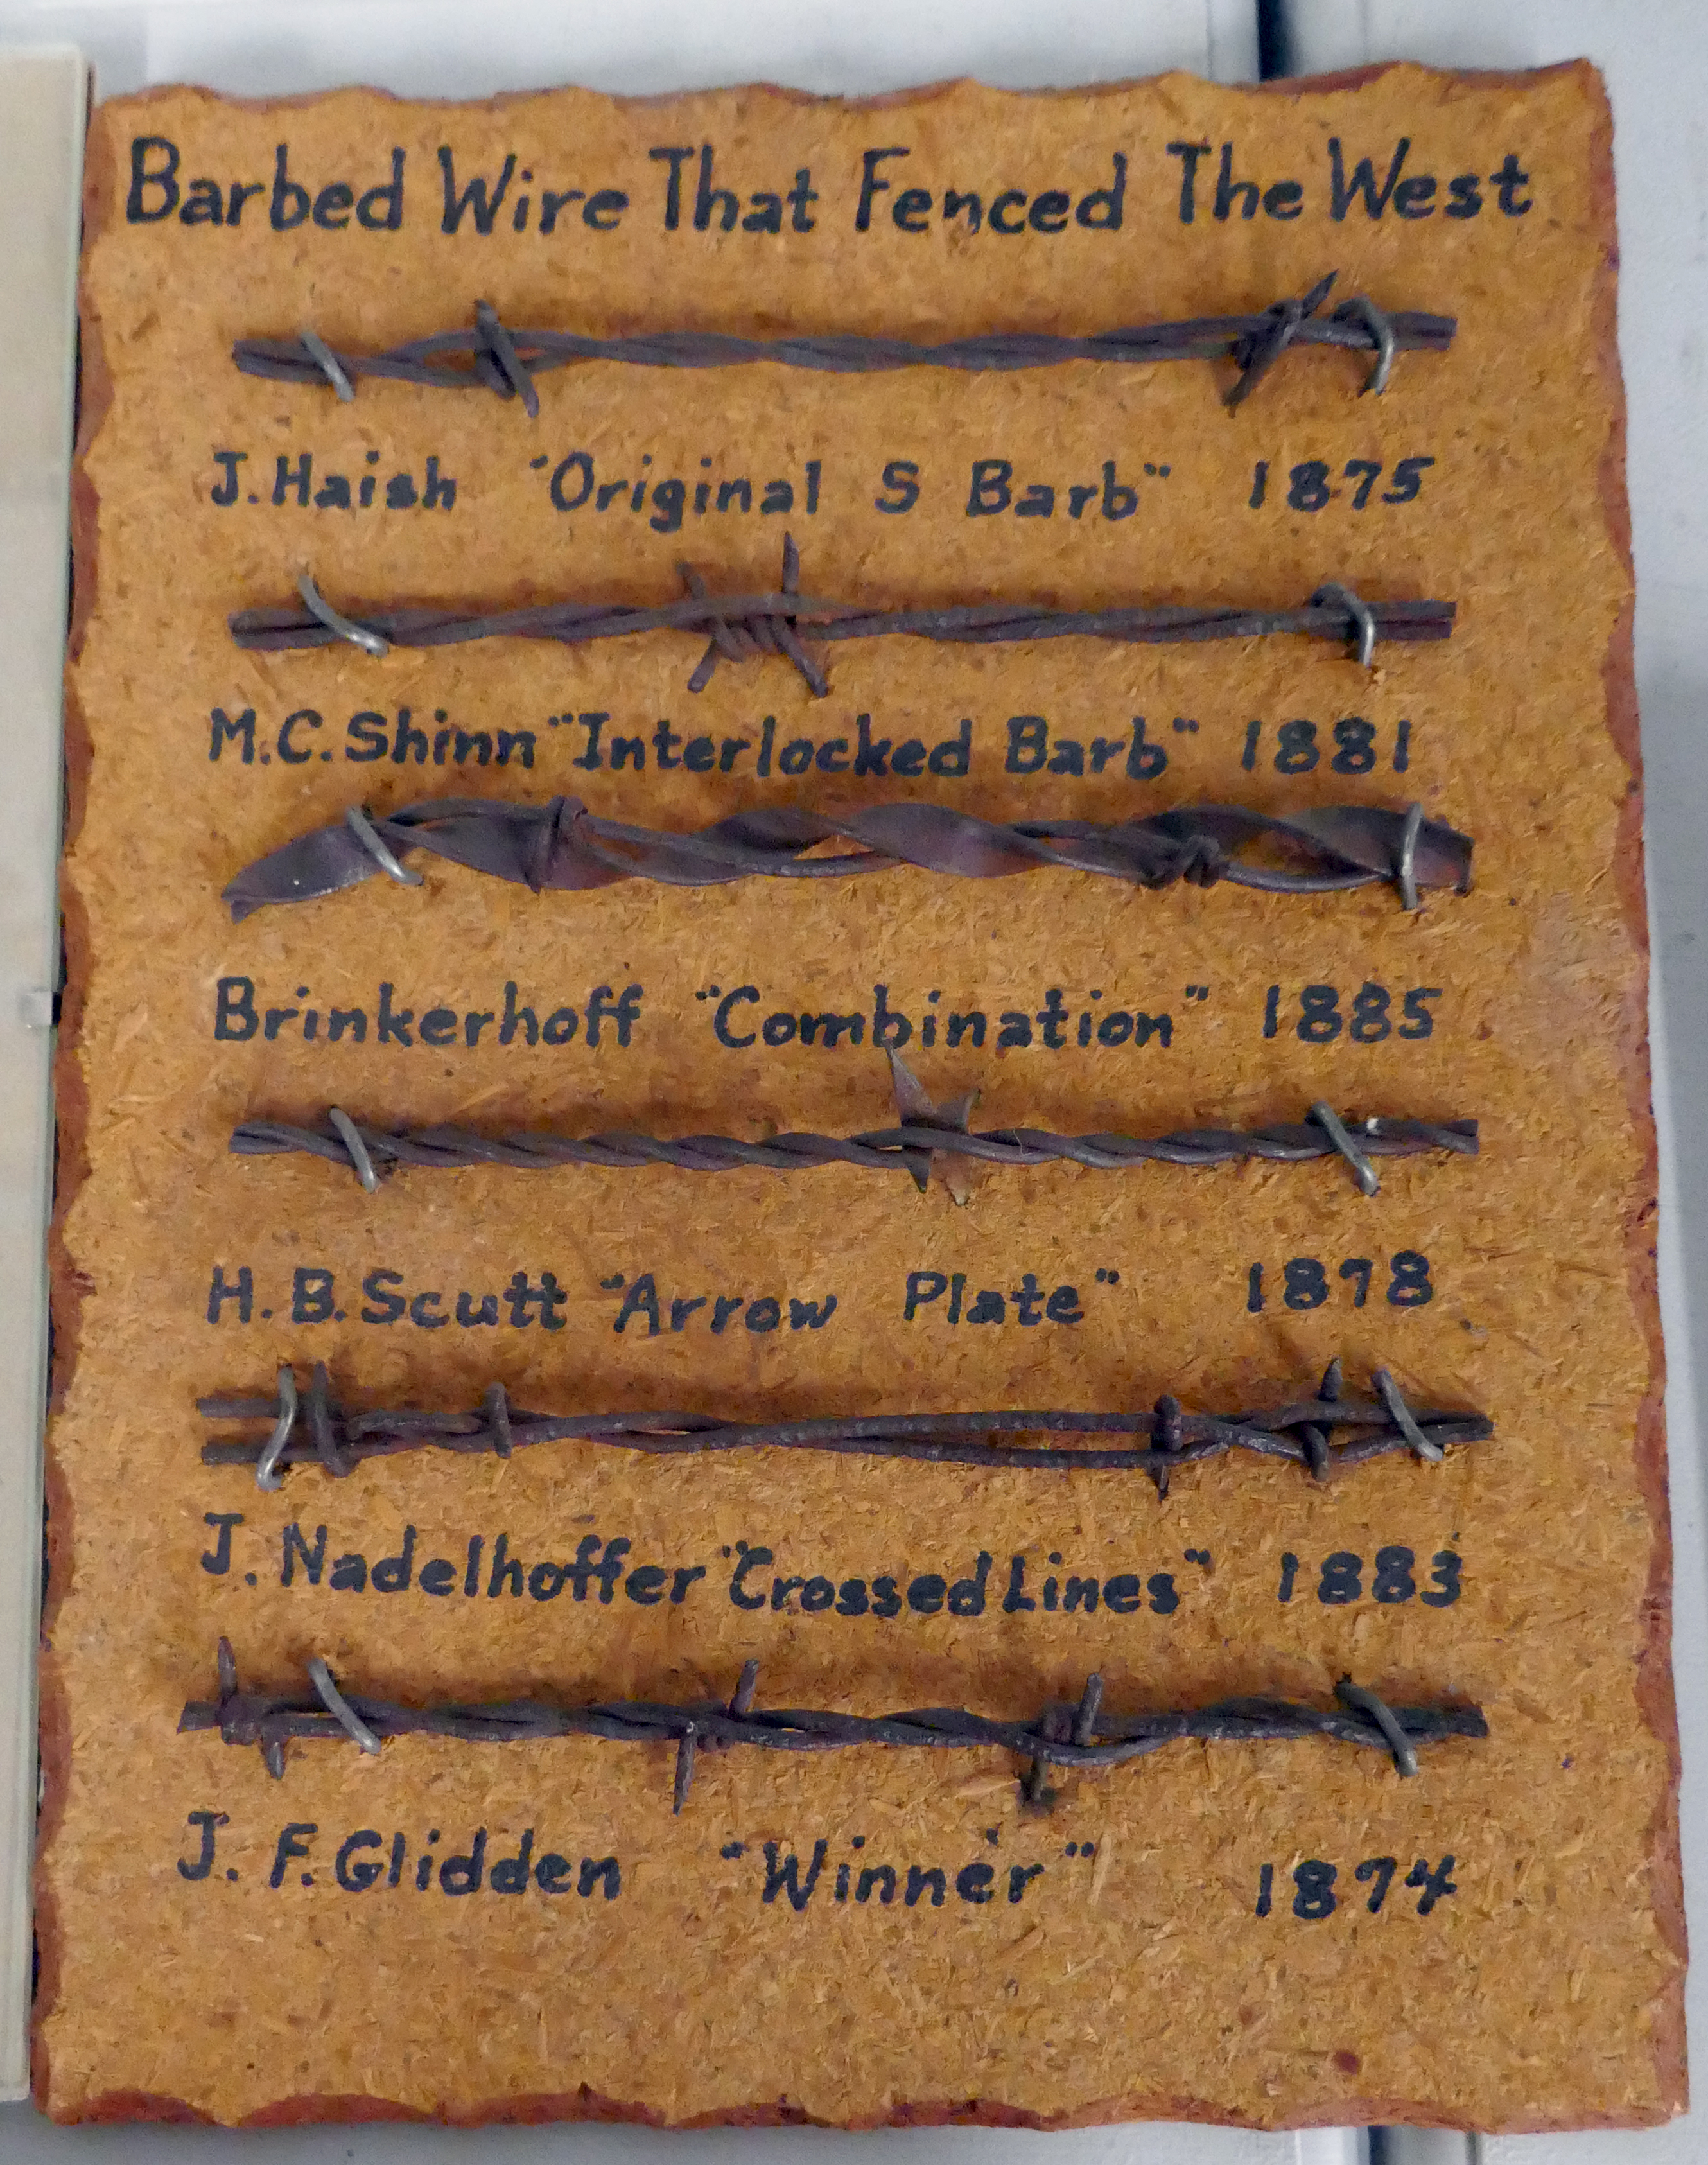 Barbed Wire That Fenced The West
J. Haish "Original S Barb" 1875
M.C. Shinn "Interlocked Barb" 1881
Brinkerhoff "Combination" 1885
H.B. Scutt "Arrow Plate" 1878
J. Nadelhoffer "Crossed Lines" 1883
J. F. Glidden "Winner" 1874